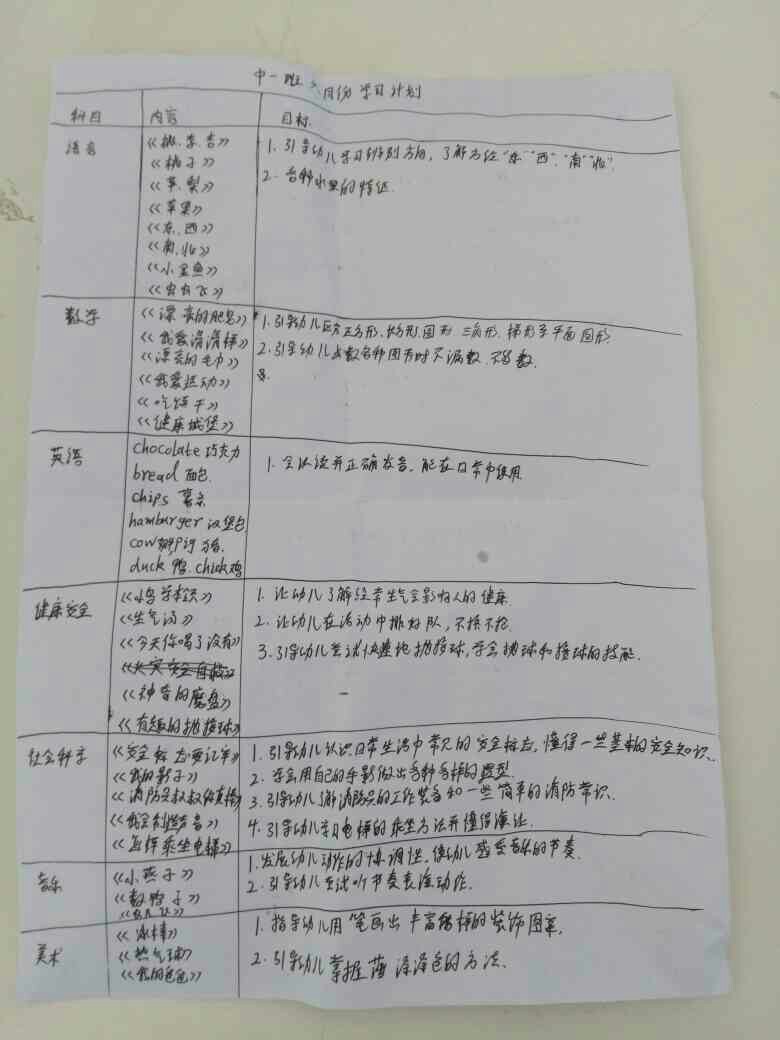 中一班 月份学习计划
科目 内容 目标.
语言 《桃.李.杏》 1. 引导幼儿学习辨别方向，了解方位"东""西"，"南""北".
《桃子》 2. 各种水果的特征.
《苹.梨》
《苹果》
《东.西》
《南.北》
《小金鱼》
《虫虫飞》
数学 《漂亮的肥皂》 1. 引导幼儿区分正方形.长方形.圆形.三角形.梯形等平面图形.
《我爱滑滑梯》 2. 引导幼儿点数各种图形时不漏数.不多数.
《漂亮的毛巾》
《我爱运动》
《吃饼干》
《健康城堡》
英语 chocolate 巧克力 1. 会认读并正确发音，能在日常中使用.
bread 面包.
chips 薯条
hamburger 汉堡包
cow
duck 鸭. chick 鸡
健康安全 1. 让幼儿了解经常生气会影响人的健康.
《生气汤》 2. 让幼儿在活动中排好队，不挤不抢.
《今天你喝了没有》 3. 引导幼儿尝试快速地抛接球，学会抛球和接球的技能.
《神奇的磨盘》
《有趣的抛接球》
社会科学 《安全标志要记牢》 1. 引导幼儿认识日常生活中常见的安全标志，懂得一些基本的安全知识.
《我的影子》 2. 学会用自己的手影做出各种各样的造型.
《消防员叔叔你真棒》 3. 引导幼儿了解消防员的工作装备和一些简单的消防常识.
《我会制造声音》 4. 引导幼儿学习电梯的乘坐方法并懂得谦让.
《怎样乘坐电梯》
音乐 《小燕子》 1. 发展幼儿动作的协调性，使幼儿感受音乐的节奏.
《数鸭子》 2. 引导幼儿尝试听节奏表演动作.
美术 《冰棒》 1. 指导幼儿用笔画出丰富多样的装饰图案.
《热气球》 2. 引导幼儿掌握涂色的方法.
《我的爸爸》